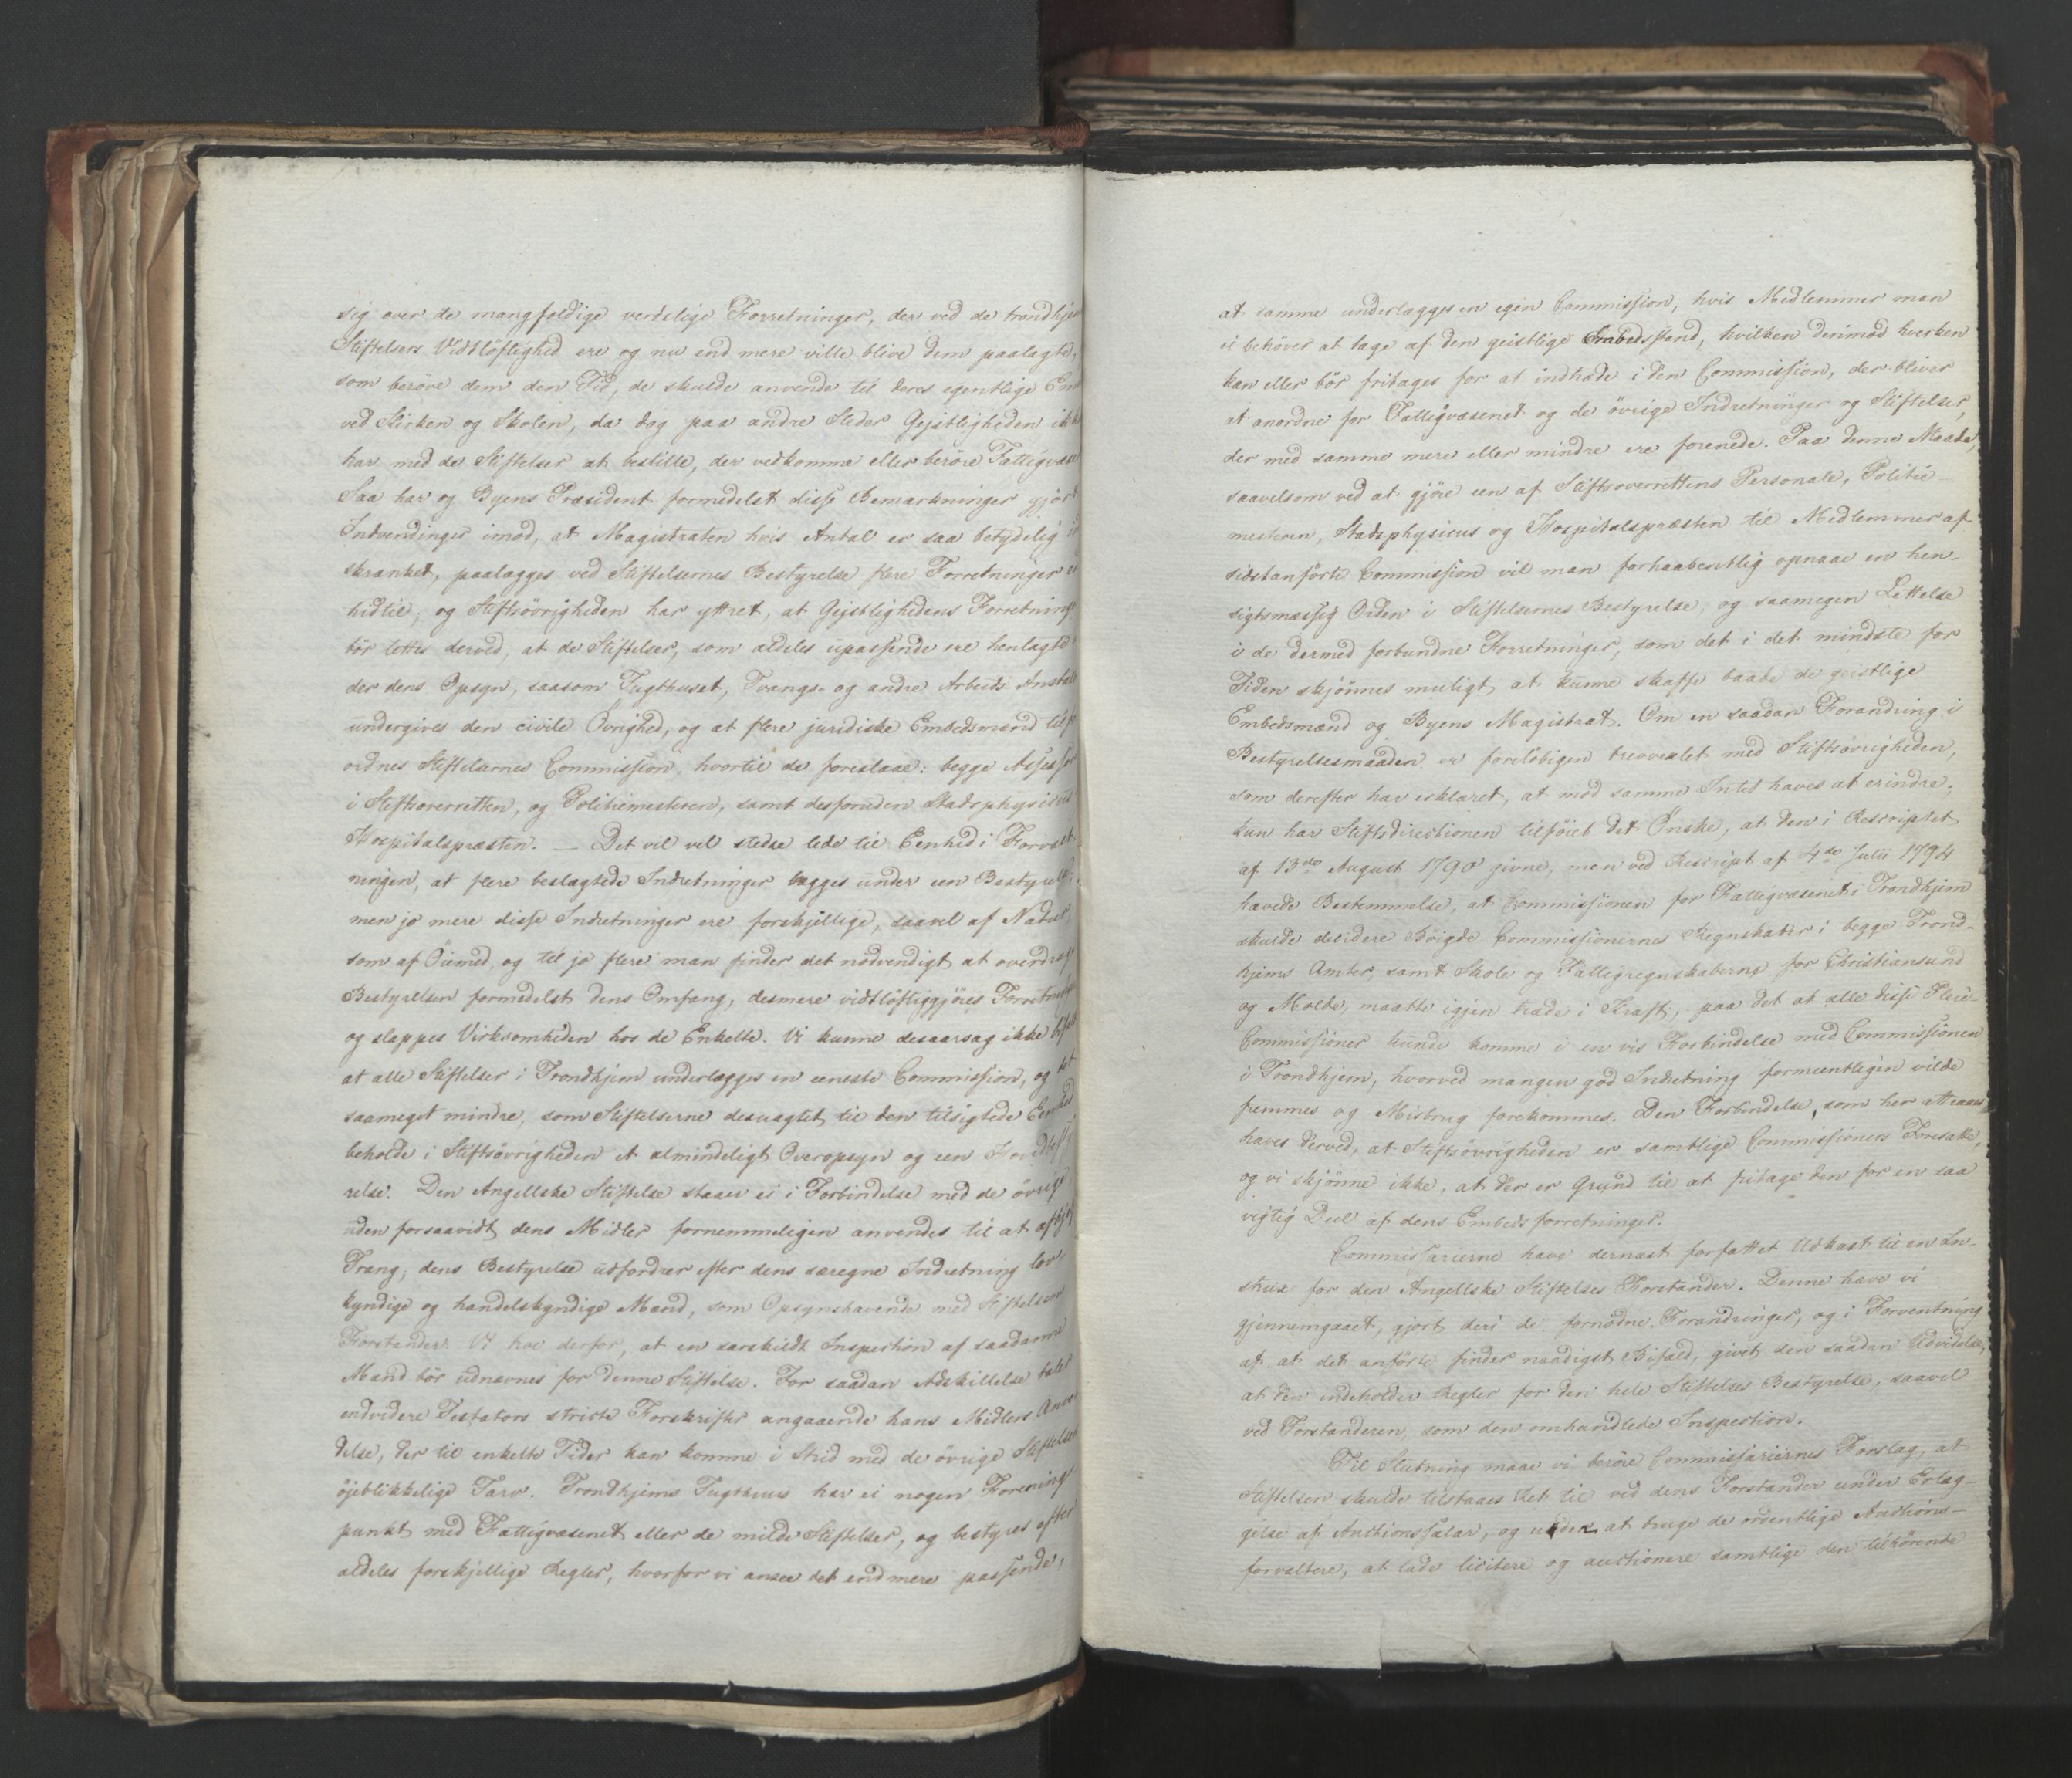 sig over de mangfoldige verdslige Forretninger, der ved de trondhjem
Stiftelsers Vidtløftighed ere og nu end mere ville blive dem paalagte,
som berøve dem den Tid, de skulde anvende til deres egentlige Em
ved Kirken og Skolen, da dog paa andre Steder Gejstligheden ikke
har med de Stiftelser at bestille, der vedkomme eller berøre Fattigvæse
Saa har og Byens Præsident formedelst disse Bemærkninger gjort
Indvendinger imod, at Magistraten hvis Antal er saa betydelig i
skrænket, paalægges ved Stiftelsernes Bestyrelse flere Forretninger e
hidtil, og Stiftsövrigheden har yttret, at Gejstlighedens Forretning
bör lettes derved, at de Stiftelser, som aldeles upassende ere henlagte
der dens Opsyn, saasom Tugthuset, Tvangs- og andre Arbeids Anstal
undergives den civile Övrighed, og at flere juridiske Embedsmænd tilf
ordnes Stiftelsernes Commission, hvortil de foreslaae: begge Assessor
i Stiftsoverretten, og Politiemesteren, samt desforuden Stadsphysicus
Hospitalspræsten. — Det vil vel stedse lede til Eenhed i Forvalt
ningen, at flere beslægtede Indretninger lægges under een Bestyrelse;
men jo mere disse Indretninger ere forskjellige, saavel af Natur,
som af Öiemed, og til jo flere man finder det nødvendigt at overdrage
Bestyrelsen formedelst dens Omfang, desmere vidtlöftiggjöres Forretni
og slappes Virksomheden hos de Enkelte. Vi kunne desaarsag ikke
at alle Stiftelser i Trondhjem underlægges en eeneste Commission, og det
saameget mindre, som Stiftelserne desuagtet til den tilsigtede Eenhed
beholde i Stiftsövrigheden et almindeligt Overopsyn og een Hovedbesty
relse. Den Angellske Stiftelse staaer ei i Forbindelse med de övrige
uden forsaavidt dens Midler fornemmeligen anvendes til at afhjel
Trang; dens Bestyrelse udfordrer efter dens særegne Indretning lov
kyndige og handelskyndige Mænd, som Opsynshavende med Stiftelsens
Forstander. Vi troe derfor, at en særskildt Inspection af saadanne
Mænd bör udnævnes for denne Stiftelse. For saadan Adskillelse taler
endvidere Testators stricte Forskrifter angaaende hans Midlers Anven
delse, der til enkelte Tider kan komme i Strid med de övrige Stiftelser
öjeblikkelige Tarv. Trondhjems Tugthuus har ei nogen Forening
punkt med Fattigvæsenet eller de milde Stiftelser, og bestyres efter
aldeles forskjellige Regler, hvorfor vi ansee det end mere passende,
at samme underlægges en egen Commission, hvis Medlemmer man
ei behöver at tage af den geistlige Embedsstand, hvilken derimod hverken
kan eller bör fritages for at indtræde i den Commission, der bliver
at anordne for Fattigvæsenet og de övrige Indretninger og Stiftelser,
der med samme mere eller mindre ere forenede. Paa denne Maade,
saavelsom ved at gjöre een af Stiftsoverrettens Personale, Politie-
mesteren, Stadsphysicus og Hospitalspræsten til Medlemmer af
sidstanförte Commission vil man forhaabentlig opnaae en hen-
sigtsmæssig Orden i Stiftelsernes Bestyrelse, og saamegen Lettelse
i de dermed forbundne Forretninger, som det i det mindste for
Tiden skjönnes muligt at kunne skaffe baade de geistlige
Embedsmænd og Byens Magistrat. Om en saadan Forandring i
Bestyrelsesmaaden er forelöbigen brevvexlet med Stiftsövrigheden,
som derefter har erklæret, at mod samme Intet haves at erindre;
kun har Stiftsdirectionen tilföiet det Önske, at den i Rescriptet
af 13de August 1790 givne, men ved Rescript af 4de Julii 1794
hævede Bestemmelse, at Commissionen for Fattigvæsenet i Trondhjem
skulde decidere Böigde Commissionernes Regnskaber i begge Trond-
hjems Amter, samt Skole og Fattigregnskaberne for Christiansund
og Molde, maatte igjen træde i Kraft, paa det at alle disse Pleie-
Commissioner kunde komme i en vis Forbindelse med Commissionen
i Trondhjem, hvorved mangen god Indretning formeentligen vilde
fremmes og Misbrug forekommes. Den Forbindelse, som her attraaes
haves derved, at Stiftsövrigheden er samtlige Commissioners Foresatte,
og vi skjönne ikke, at der er Grund til at fritage den for en saa
vigtig Deel af dens Embedsforretninger.
Commissarierne have dernæst forfattet Udkast til en In-
strux for den Angellske Stiftelses Forstander. Denne have vi
gjennemgaaet, gjort deri de fornödne Forandringer, og i Forventning
af, at det anförte finder naadigst Bifald, givet den saadan Udvidelse,
at den indeholder Regler for den hele Stiftelses Bestyrelse, saavel
ved Forstanderen, som den omhandlede Inspection.
Til Slutning maae vi beröre Commissariernes Forslag, at
Stiftelsen skulde tilstaaes Ret til ved dens Forstander under Erlæg-
gelse af Auctionssalær, og uden at bruge de ordentlige Auctions-
forvaltere, at lade licitere og auctionere samtlige den tilhörende